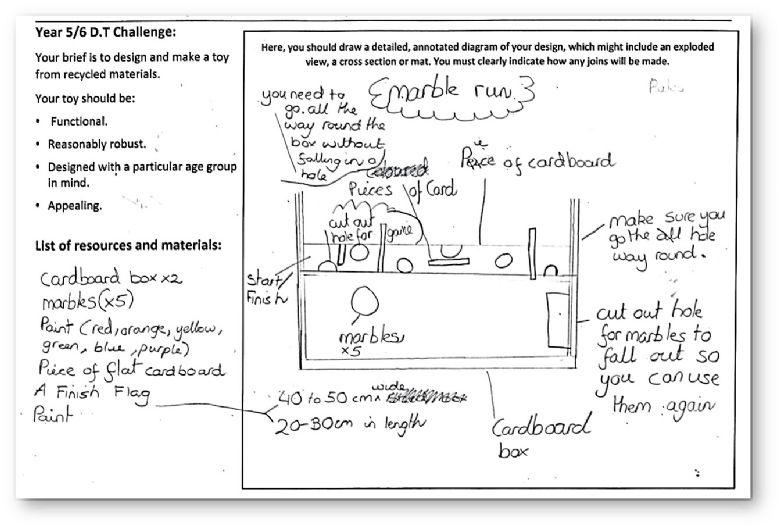 Year 5/6 D.T Challenge:
Your brief is to design and make a toy
from recycled materials.
Your toy should be:
• Functional.
• Reasonably robust.
• Designed with a particular age group
in mind.
• Appealing.
List of resources and materials:
Cardboard box x2
marbles (x5)
Paint (red, orange, yellow,
green, blue, purple)
Piece of flat cardboard
A Finish Flag
Paint
Here, you should draw a detailed, annotated diagram of your design, which might include an exploded
view, a cross section or mat. You must clearly indicate how any joins will be made.
marble run.
you need to
go. all the
way round the
box without
falling in a
hole
Coloured
Pieces of Card
Piece of cardboard
cut out
hole for game
start/
Finish
marbles
x5
make sure you
go the all hole
way round.
cut out hole
for marbles to
fall out so
you can use
them again
40 to 50 cm wide
20-30cm in length
Cardboard
box